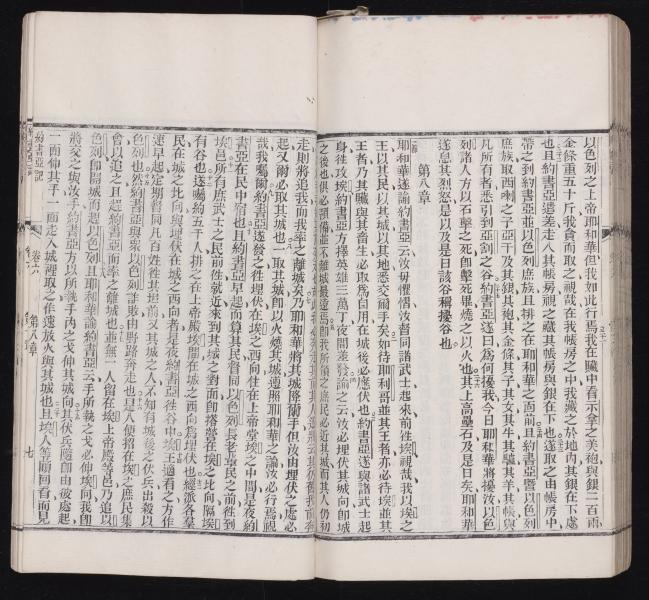 以色列之上帝耶和華但我如此行焉我在贓中看示拿之美袍與銀二百兩
金條重五十斤我貪而取之視哉在我帳房之中我藏之於地內其銀在下處
也且約書亞遣差走入其帳房視之藏其帳房與銀在下也遂取之由帳房中
帶之到約書亞並以色列庶族且排之在耶和華之面前且約書亞暨以色列
庶族取西喇之子亞干及其銀其袍其金條其子其女其牛其驢其羊其帳與
凡所有者悉引到亞割之谷約書亞遂曰為何擾我今日耶和華將擾汝以色
列諸人方以石擊之死即擊死畢燒之以火也其上高壘石及是日矣耶和華
遂息其烈怒是以及是日該谷稱擾谷也
第八章
耶和華遂諭約書亞云汝毋懼惛汝督同諸武士起來前徃埃視哉我以埃之
王以其民以其城以其地悉交爾手矣如待耶利哥並其王者亦必待埃並其
王者乃其贓與其畜生必取為自用在城後必應伏也約書亞遂與諸武士起
身徃攻埃約書亞方擇英雄三萬丁夜間差發諭之云汝必埋伏其城向即城
之後也俱必預備並不離城最遠焉即我所領之庶民必近其城而其人仍初
走則將追我而我等之離城矣乃耶和華將其城降爾手但汝由埋伏之處必
起又爾必取其城也取其城即以火燒其城遵照耶和華之諭汝必行焉視
哉我囑爾約書亞遂發之徃埋伏在埃之西向住在上帝堂埃之中間是夜約
書亞在民中宿也且約書亞早起而算其民督同以色列長老當民之前徃到
埃邑所有庶武士之民前徃就近來到其城之對面即搭營在埃之比向隔埃
有谷也遂囑約五千人排之在上帝殿埃間在城之西向為埋伏也經派各羣
民在城之比向與埋伏在城之西向者是夜約書亞徃谷中埃王適看之方作
速早起定期督同凡百姓徃其坦前又其城之人不知有城後之伏兵出殺以
色列也然約書亞與眾以色列詐敗由野路奔走也是人使招在埃之庶民集
會以追之且趕約書亞而率之離城也並無一人留在埃上帝殿等邑乃追以
色列即開城而趕以色列且耶和華諭約書亞云手所執之戈必伸埃向我即
將交之與汝手約書亞方以所執手內之戈伸其城向其伏兵隨即由彼處起
一面伸其手一面走入城裡取之作速放火與其城也且埃人等顧回看而見
約書亞記
卷六
第八章
七